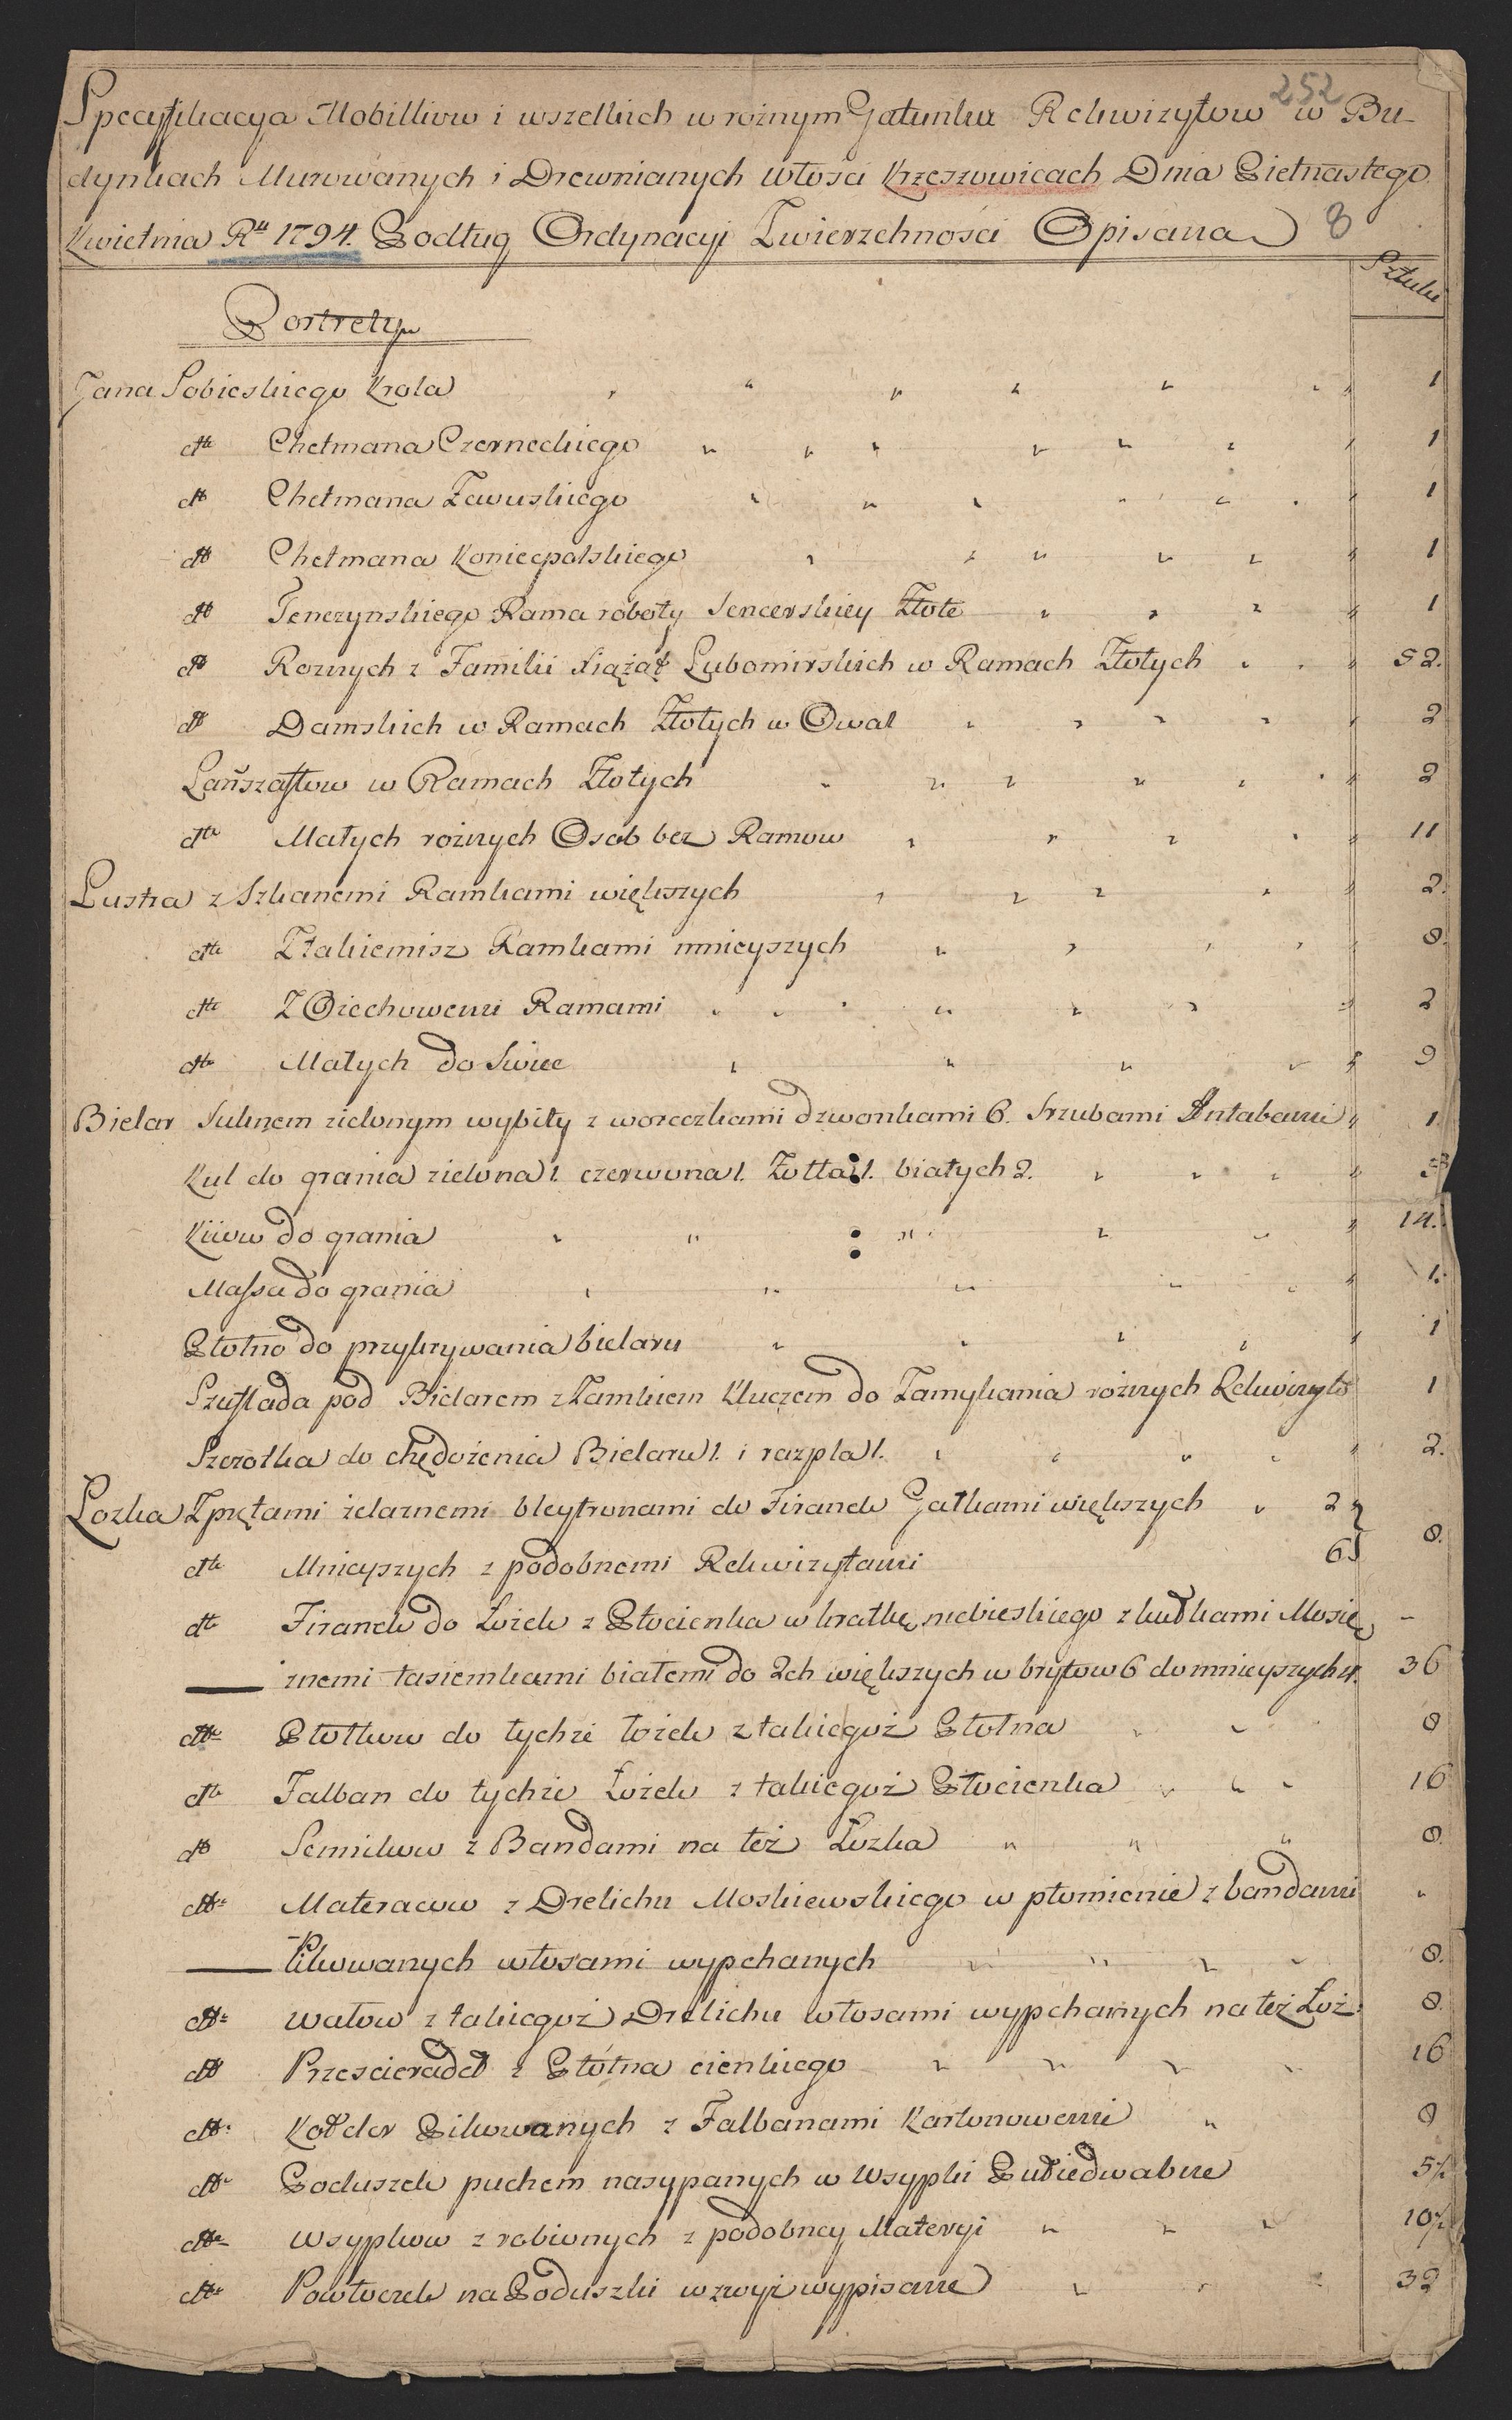 252
Specyfikacya Mobilliow i wszelkich w rożnym Gatunku Rekwizytow w Bu-
dynkach Murowanych i Drewnianych Włosci Krzeszowicach Dnia Pietnastego
Kwietnia Ru 1794. Podług Ordynacyi Zwierzchności Opisana 8
Sztuki
Portrety
Jana Sobieskiego Krola 1
dtto Chetmana Czerneckiego 1
dtto Chetmana Zawuskiego 1
dtto Chetmana Koniecpolskiego 1
dtto Tenczynskiego Rama roboty Sencerskiey Złote 1
dtto Roznych z Familii Siążąt Lubomirskich w Ramach Złotych 52.
dtto Damskich w Ramach Złotych w Owal 2
Lanszaftow w Ramach Złotych 2
dtto Małych rożnych Osob bez Ramow 11
Lustra z Szkanemi Ramkami większych 2.
dtto Ztakiemisz Ramkami mnieyszych 8.
dtto Z Orechowemi Ramami 2
dtto Małych do Swiec 9
Bielar Suknem zielonym wybity z woreczkami dzwonkami 6. Srzubami Antabami 1
Kul do grania zielona 1. czerwona 1. Żołta 1. białych 2. 5
Kiiow do grania 14.
Massa do grania 1.
Płotno do przykrywania bielaru 1
Szuflada pod Bielarem z Zamkiem Kluczem do Zamykania rożnych Rekwizyto 1
Szczotka do chędożenia Bielaru 1. i raszpla 1. 2.
Lozka Z prętami żelaznemi bleytronami do Firanek Gałkami większych 2
8.
dtto Mnieyszych z podobnemi Rekwizytami 6
dtto Firanek do Łożek z Płocienka w kratkę niebieskiego z kułkami Mosię -
znemi tasiemkami białemi do 2ch większych w brytow 6 do mnieyszych 4. 36
dtto Płotkow do tychże łożek z takiegoż Płotna 8
dtto Falban do tychże Łożek z takiegoż Płocienka 16
dtto Sennikow z Bandami na też Łozka 8.
dtto Materacow z Drelichu Moskiewskiego w płomienie z bandami
Pikowanych włosami wypchanych 8.
dtto Wałow z takiegoż Drelichu włosami wypchanych na też Łoż 8.
dtto Przescieradeł z Płótna cienkiego 16
dtto Kołder Pikowanych z Falbanami Kartonowemi 8
dtto Poduszek puchem nasypanych w Wsypki Pułiedwabne 54
dtto Wsypkow zrobionych z podobney Materyi 104
dtto Powłoczek na Poduszki wzwyż wypisane 32